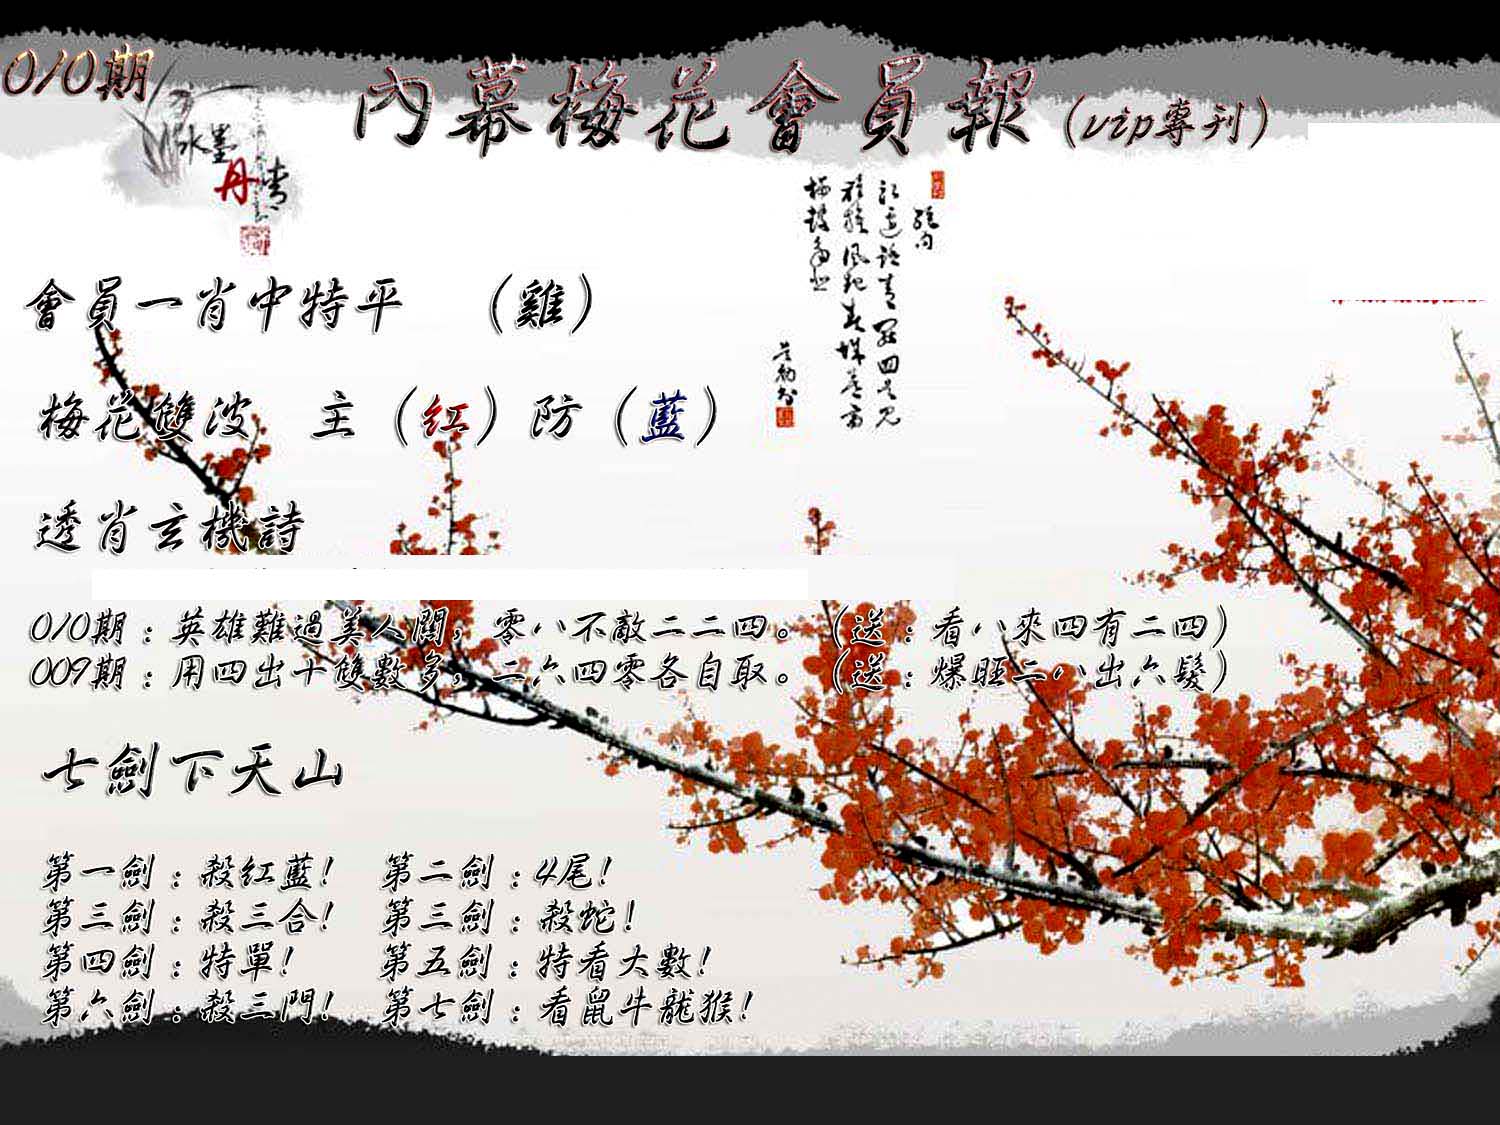 010期
內幕梅花會員報（vip專刊）
水墨
丹青
會員一肖中特平 （雞）
梅花雙波 主（紅）防（藍）
透肖玄機詩
010期：英雄難過美人關，零八不敵二二四。（送：看八來四有二四）
009期：用四出十雙數多，二六四零各自取。（送：爆旺二八出六發）
七劍下天山
第一劍：殺紅藍！ 第二劍：4尾！
第三劍：殺三合！ 第三劍：殺蛇！
第四劍：特單！ 第五劍：特看大數！
第六劍：殺三門！ 第七劍：看鼠牛龍猴！